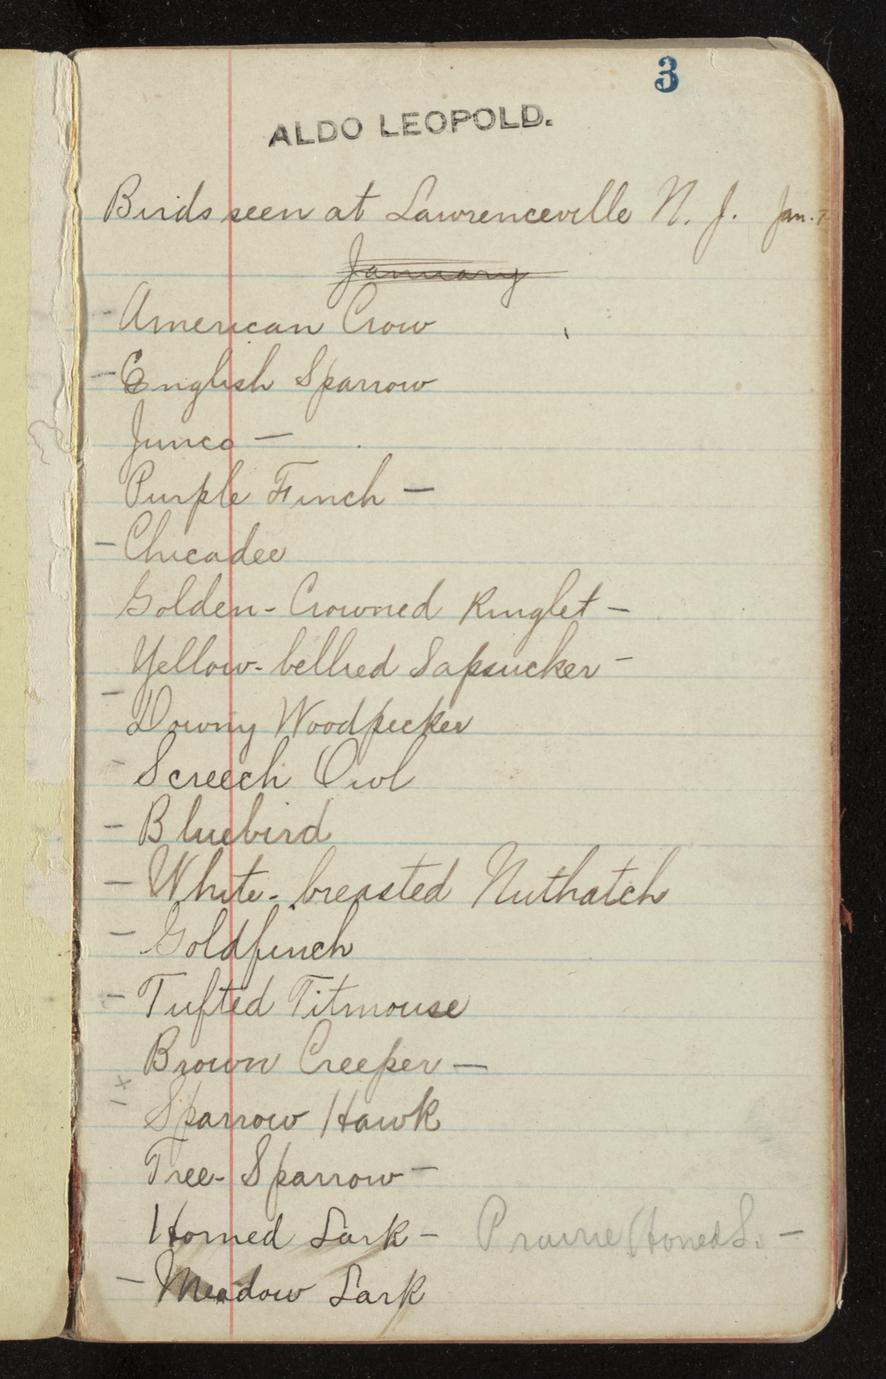 3
ALDO LEOPOLD.
Birds seen at Lawrenceville N. J. Jan. 7
January
- American Crow
- English Sparrow
Junco -
Purple Finch -
- Chicadee
Golden-Crowned Kinglet -
Yellow-bellied Sapsucker -
- Downy Woodpecker
- Screech Owl
- Bluebird
- White-breasted Nuthatch
- Goldfinch
- Tufted Titmouse
Brown Creeper -
1x Sparrow Hawk
Tree-Sparrow -
Horned Lark - Prairie Horned L. -
- Meadow Lark